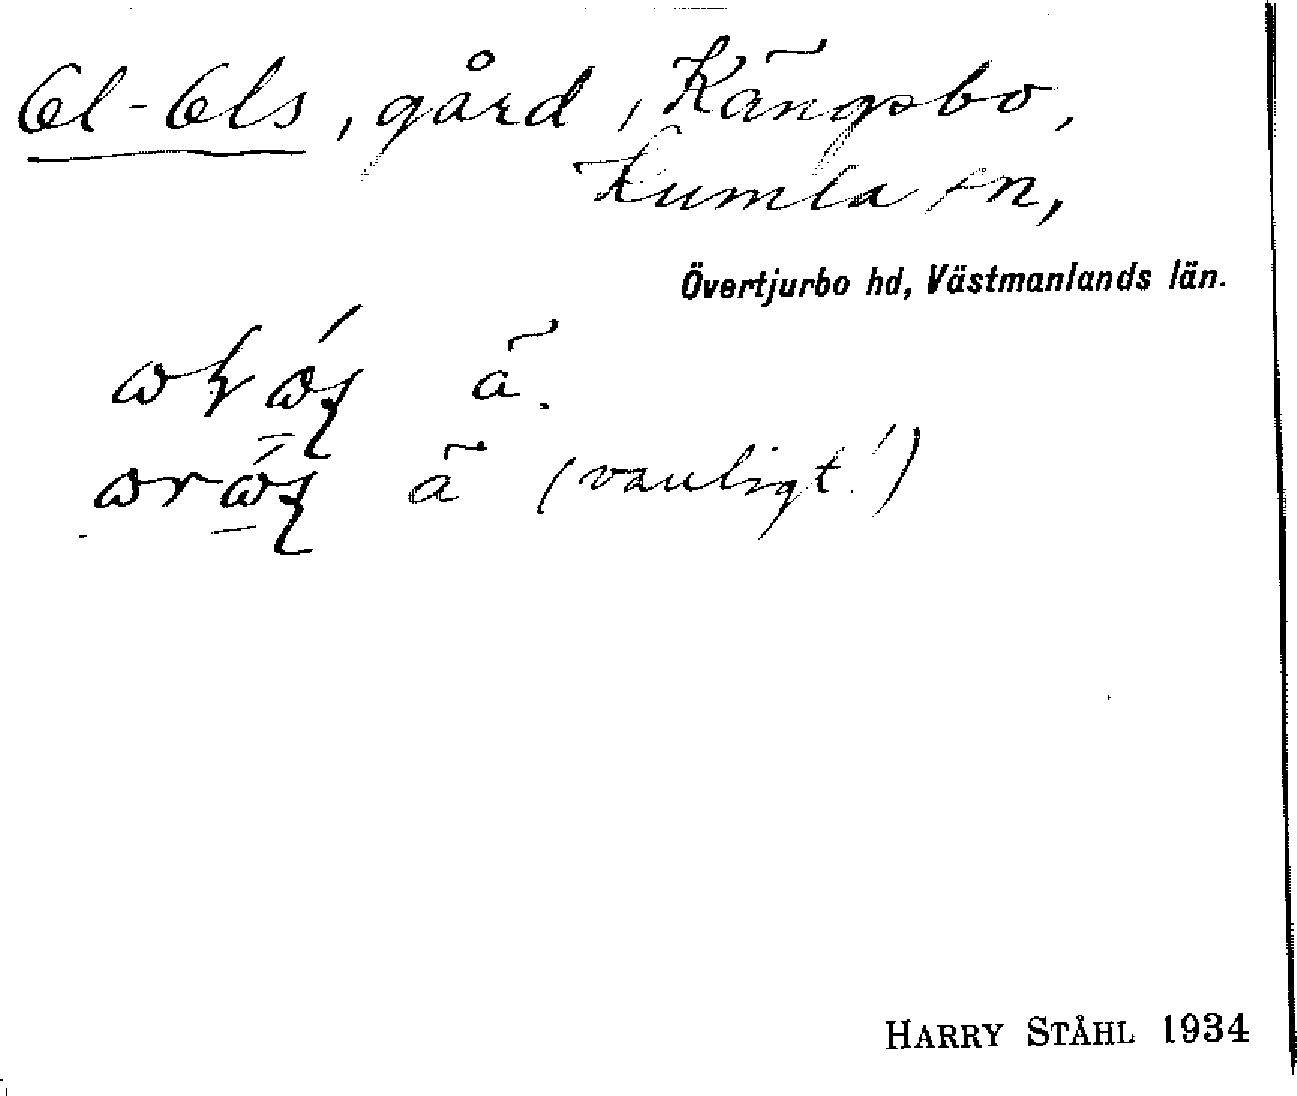 Ol-Ols, gård, Kängsbo,
Kumla sn,
Övertjurbo hd, Västmanlands län.
ã.
ã (vanligt!)
HARRY STÅHL 1934